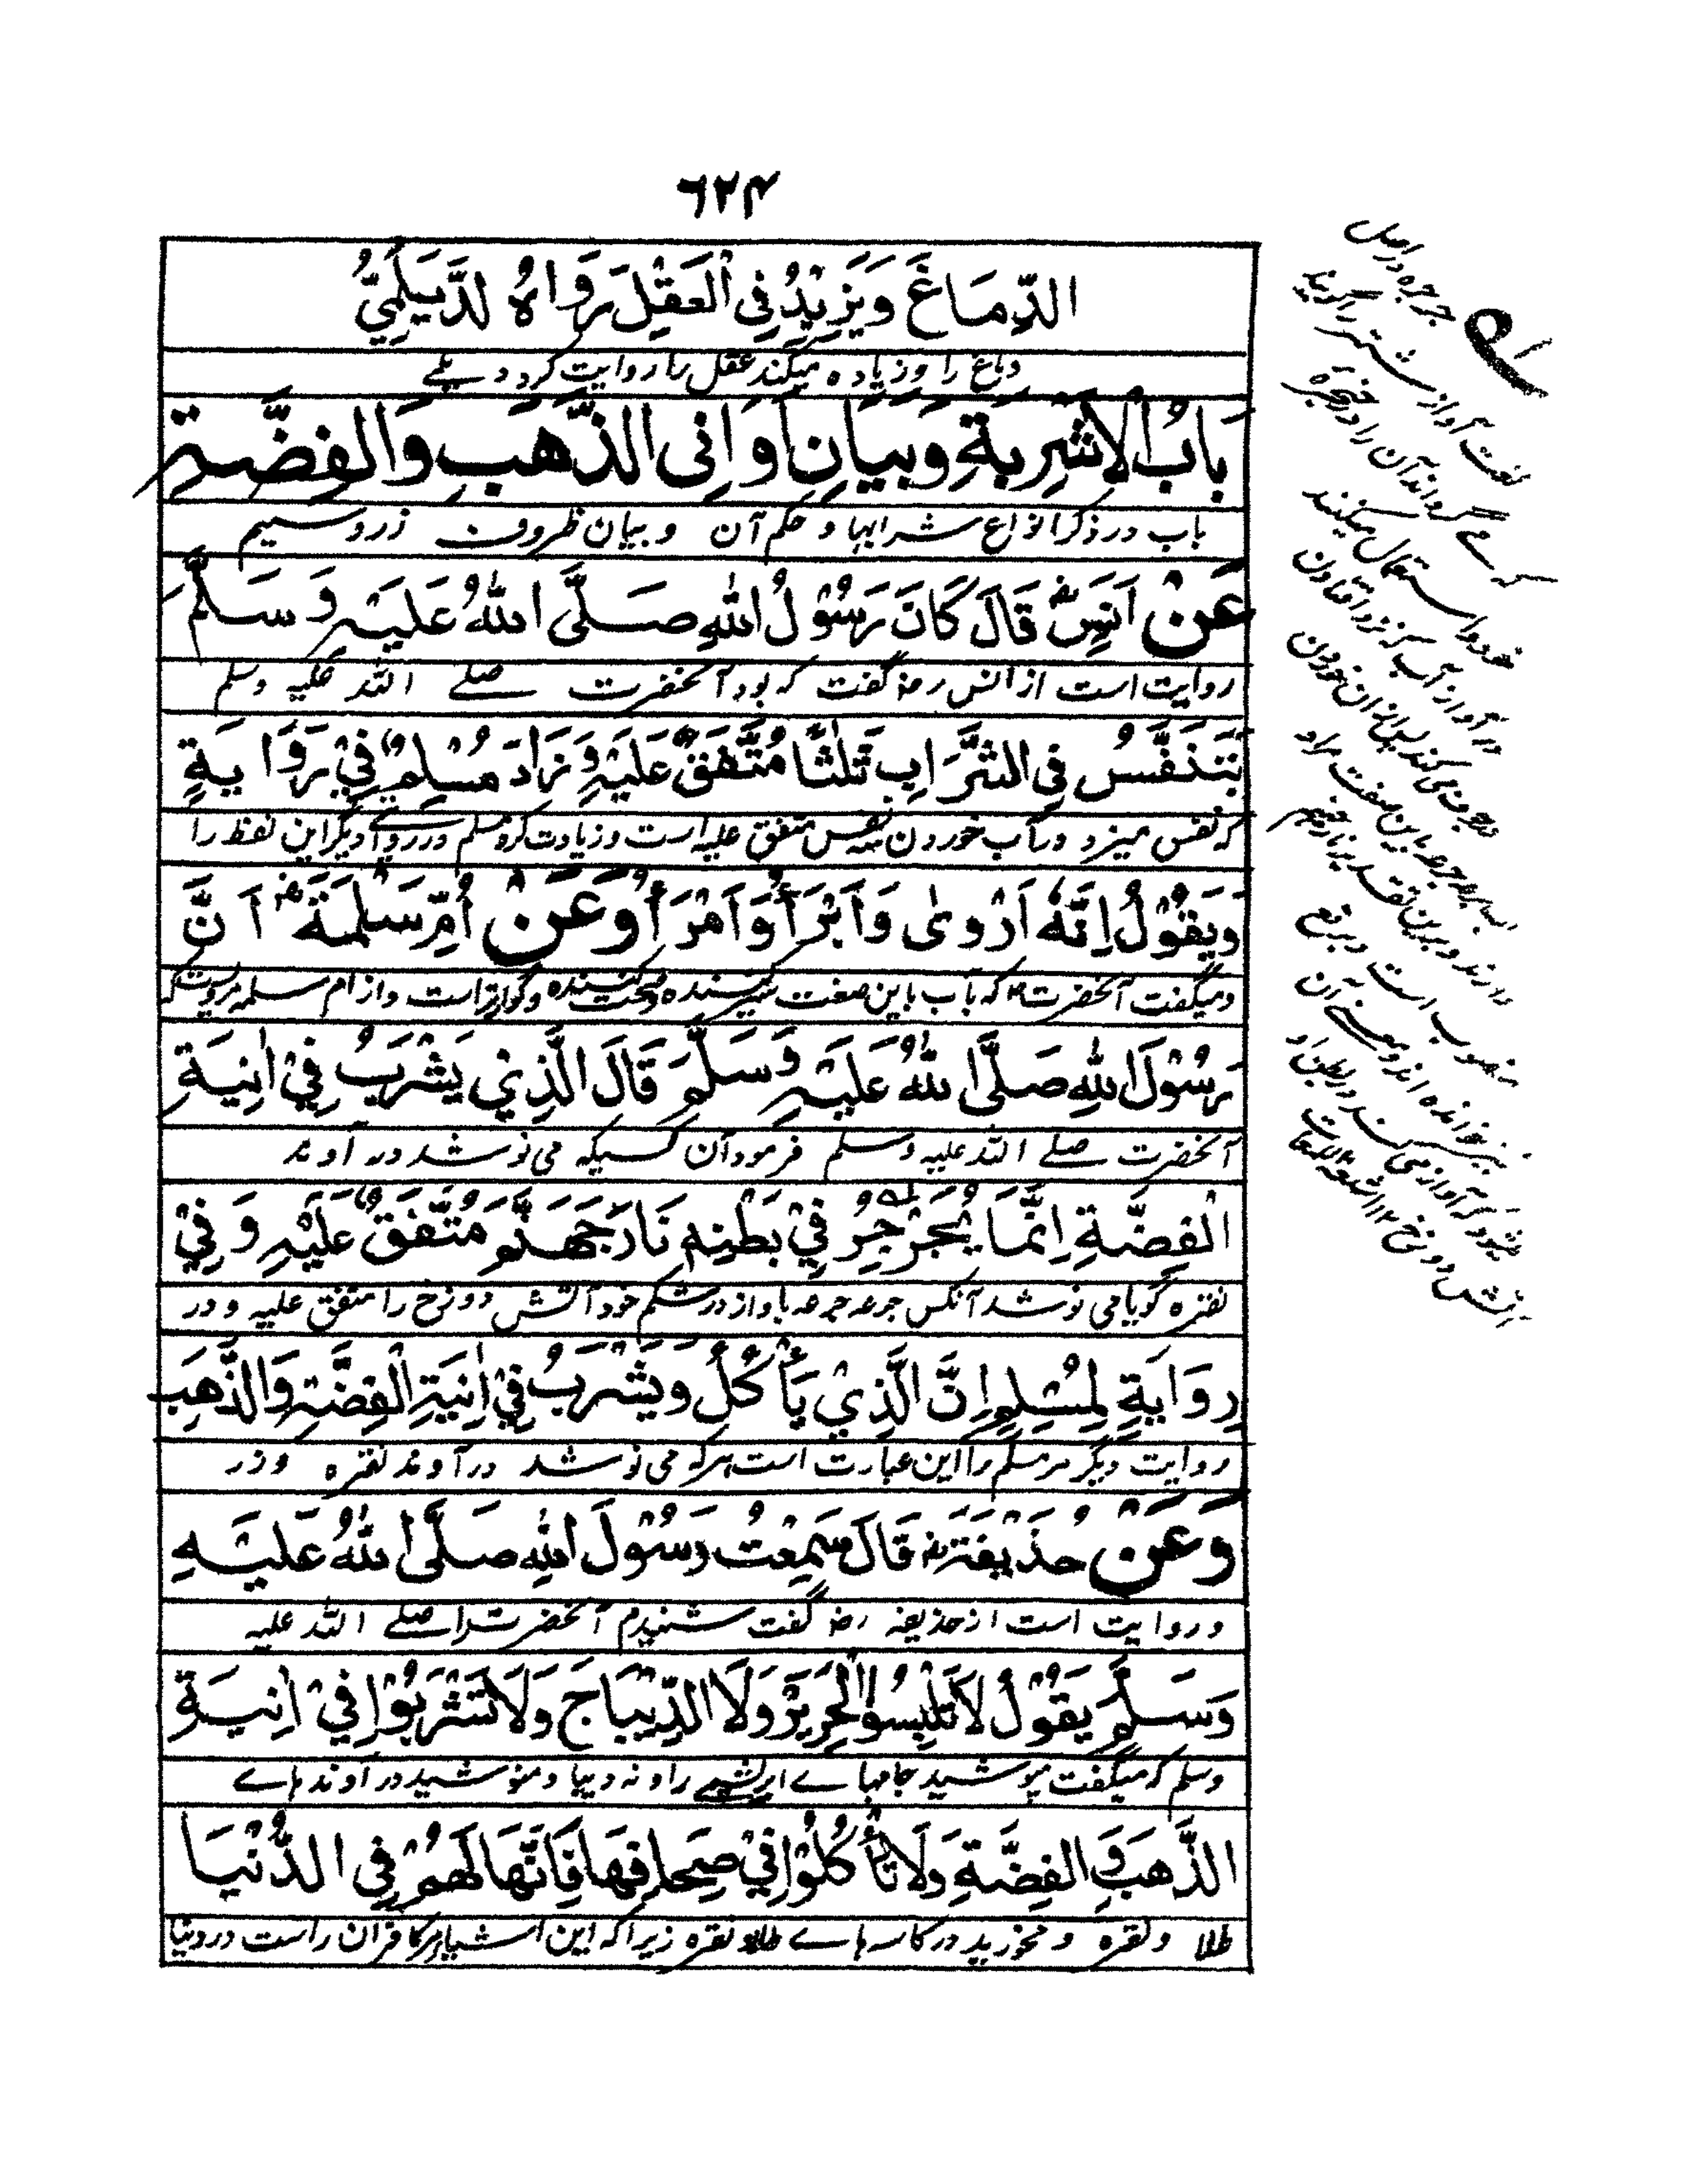 ٦٢٤
الدِّمَاغَ وَيَزِيْدُ فِى الْعَقْلِ رَوَاهُ الدَّيْلَمِيُّ
دماغ را و زیاده میکند عقل را روایت کرد دیلمے
بَابُ الْاَشْرِبَةِ وَبَيَانِ اَوَانِى الذَّهَبِ وَالْفِضَّةِ
باب در ذکر انواع شرابها و حکم آن و بیان ظروف زر و سیم
عَنْ اَنَسٍ رض قَالَ كَانَ رَسُوْلُ اللّٰهِ صَلَّى اللّٰهُ عَلَيْهِ وَسَلَّمَ
روایت است از انس رض گفت که بود آنحضرت صلے اللہ علیہ وسلم
يَتَنَفَّسُ فِى الشَّرَابِ ثَلٰثًا مُتَّفَقٌ عَلَيْهِ وَزَادَ مُسْلِمٌ فِيْ رِوَايَةٍ
که نفس میزد در آب خوردن سه نفس متفق علیه است و زیادت کرد مسلم در روایتے دیگر این لفظ را
وَيَقُوْلُ اِنَّهٗ اَرْوٰى وَاَبْرَأُ وَاَمْرَأُ وَعَنْ اُمِّ سَلَمَةَ رض اَنَّ
و میگفت آنحضرت ص که آب باین صفت سیر کننده و صحت کننده و گواراتر است و از ام سلمه مرویست که
رَسُوْلَ اللّٰهِ صَلَّى اللّٰهُ عَلَيْهِ وَسَلَّمَ قَالَ الَّذِيْ يَشْرَبُ فِيْ اٰنِيَةِ
آنحضرت صلے اللہ علیہ وسلم فرمود آن کسیکه می نوشد در آوند
الْفِضَّةِ اِنَّمَا يُجَرْجِرُ فِيْ بَطْنِهٖ نَارَ جَهَنَّمَ مُتَّفَقٌ عَلَيْهِ وَفِيْ
نقره گویا می نوشد آنکس جرعه جرعه باواز در شکم خود آتش دوزخ را متفق علیه و در
رِوَايَةٍ لِمُسْلِمٍ اِنَّ الَّذِيْ يَأْكُلُ وَيَشْرَبُ فِيْ اٰنِيَةِ الْفِضَّةِ وَالذَّهَبِ
روایت دیگر مر مسلم را این عبارت است هر که می نوشد در آوند نقره و زر
وَعَنْ حُذَيْفَةَ رض قَالَ سَمِعْتُ رَسُوْلَ اللّٰهِ صَلَّى اللّٰهُ عَلَيْهِ
و روایت است از حذیفه رض گفت شنیدم آنحضرت را صلے اللہ علیہ
وَسَلَّمَ يَقُوْلُ لَا تَلْبِسُوا الْحَرِيْرَ وَلَا الدِّيْبَاجَ وَلَا تَشْرَبُوْا فِيْ اٰنِيَةِ
وسلم که میگفت مپوشید جامهاے ابریشمے را و نه دیبا و منوشید در آوند ہاے
الذَّهَبِ وَالْفِضَّةِ وَلَا تَأْكُلُوْا فِيْ صِحَافِهَا فَاِنَّهَا لَهُمْ فِى الدُّنْيَا
طلا و نقره و مخورید در کاسه ہاے طلا و نقره زیرا که این اشیا مر کافران راست در دنیا
جرجره در اصل
لغت آواز شتر را گویند
که گرداند آن را در حنجره
خود و استعمال میکنند
در آواز آب که نزد افتادن